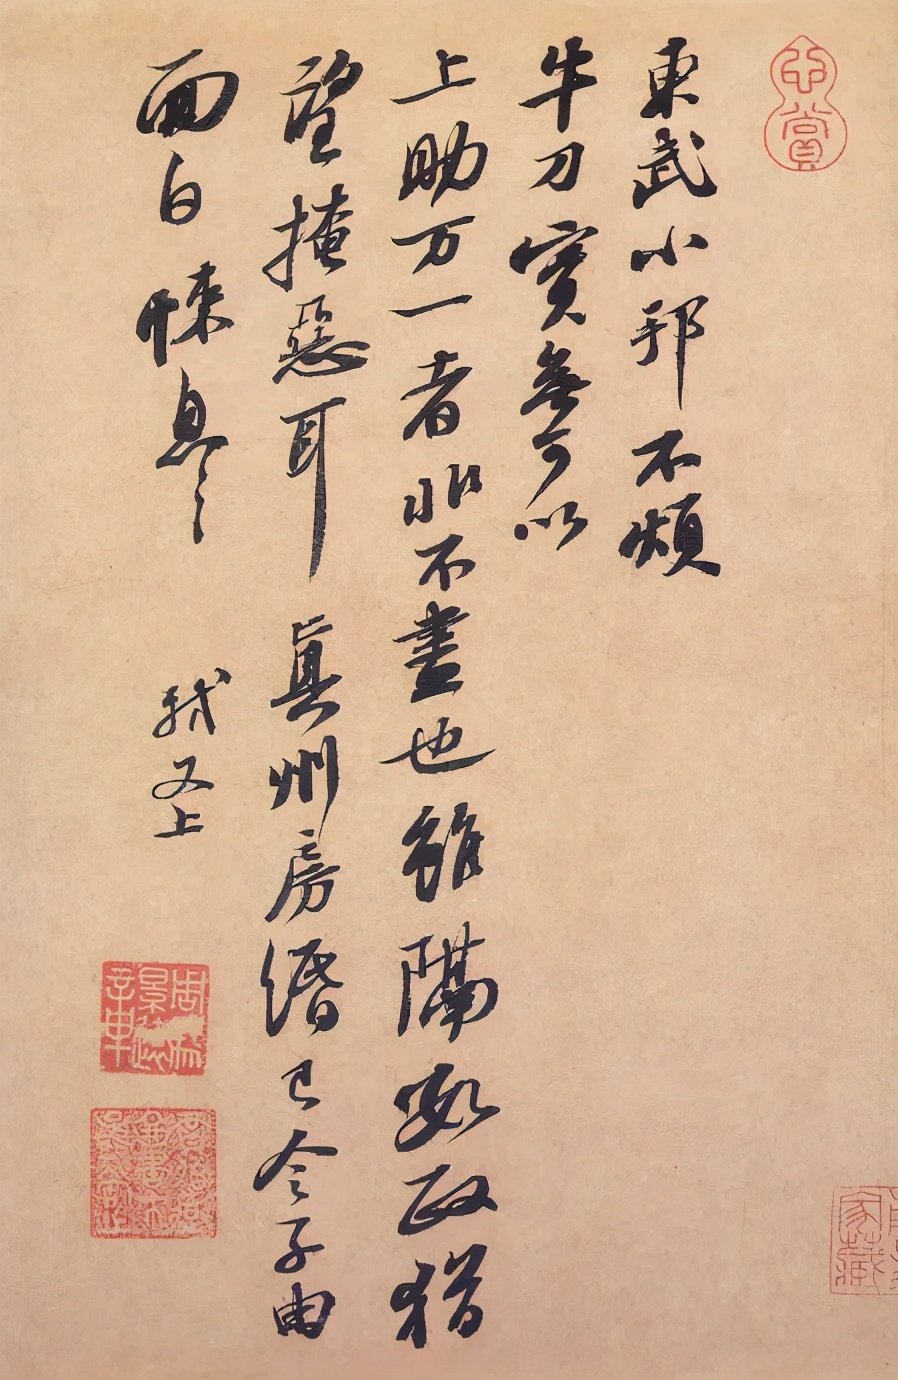 東武小邦不煩
牛刀實無可以
上助万一者非不盡也雖隔數政猶
望掩惡耳 真州房緡已令子由
面白悚息〻 軾又上
賞
家藏